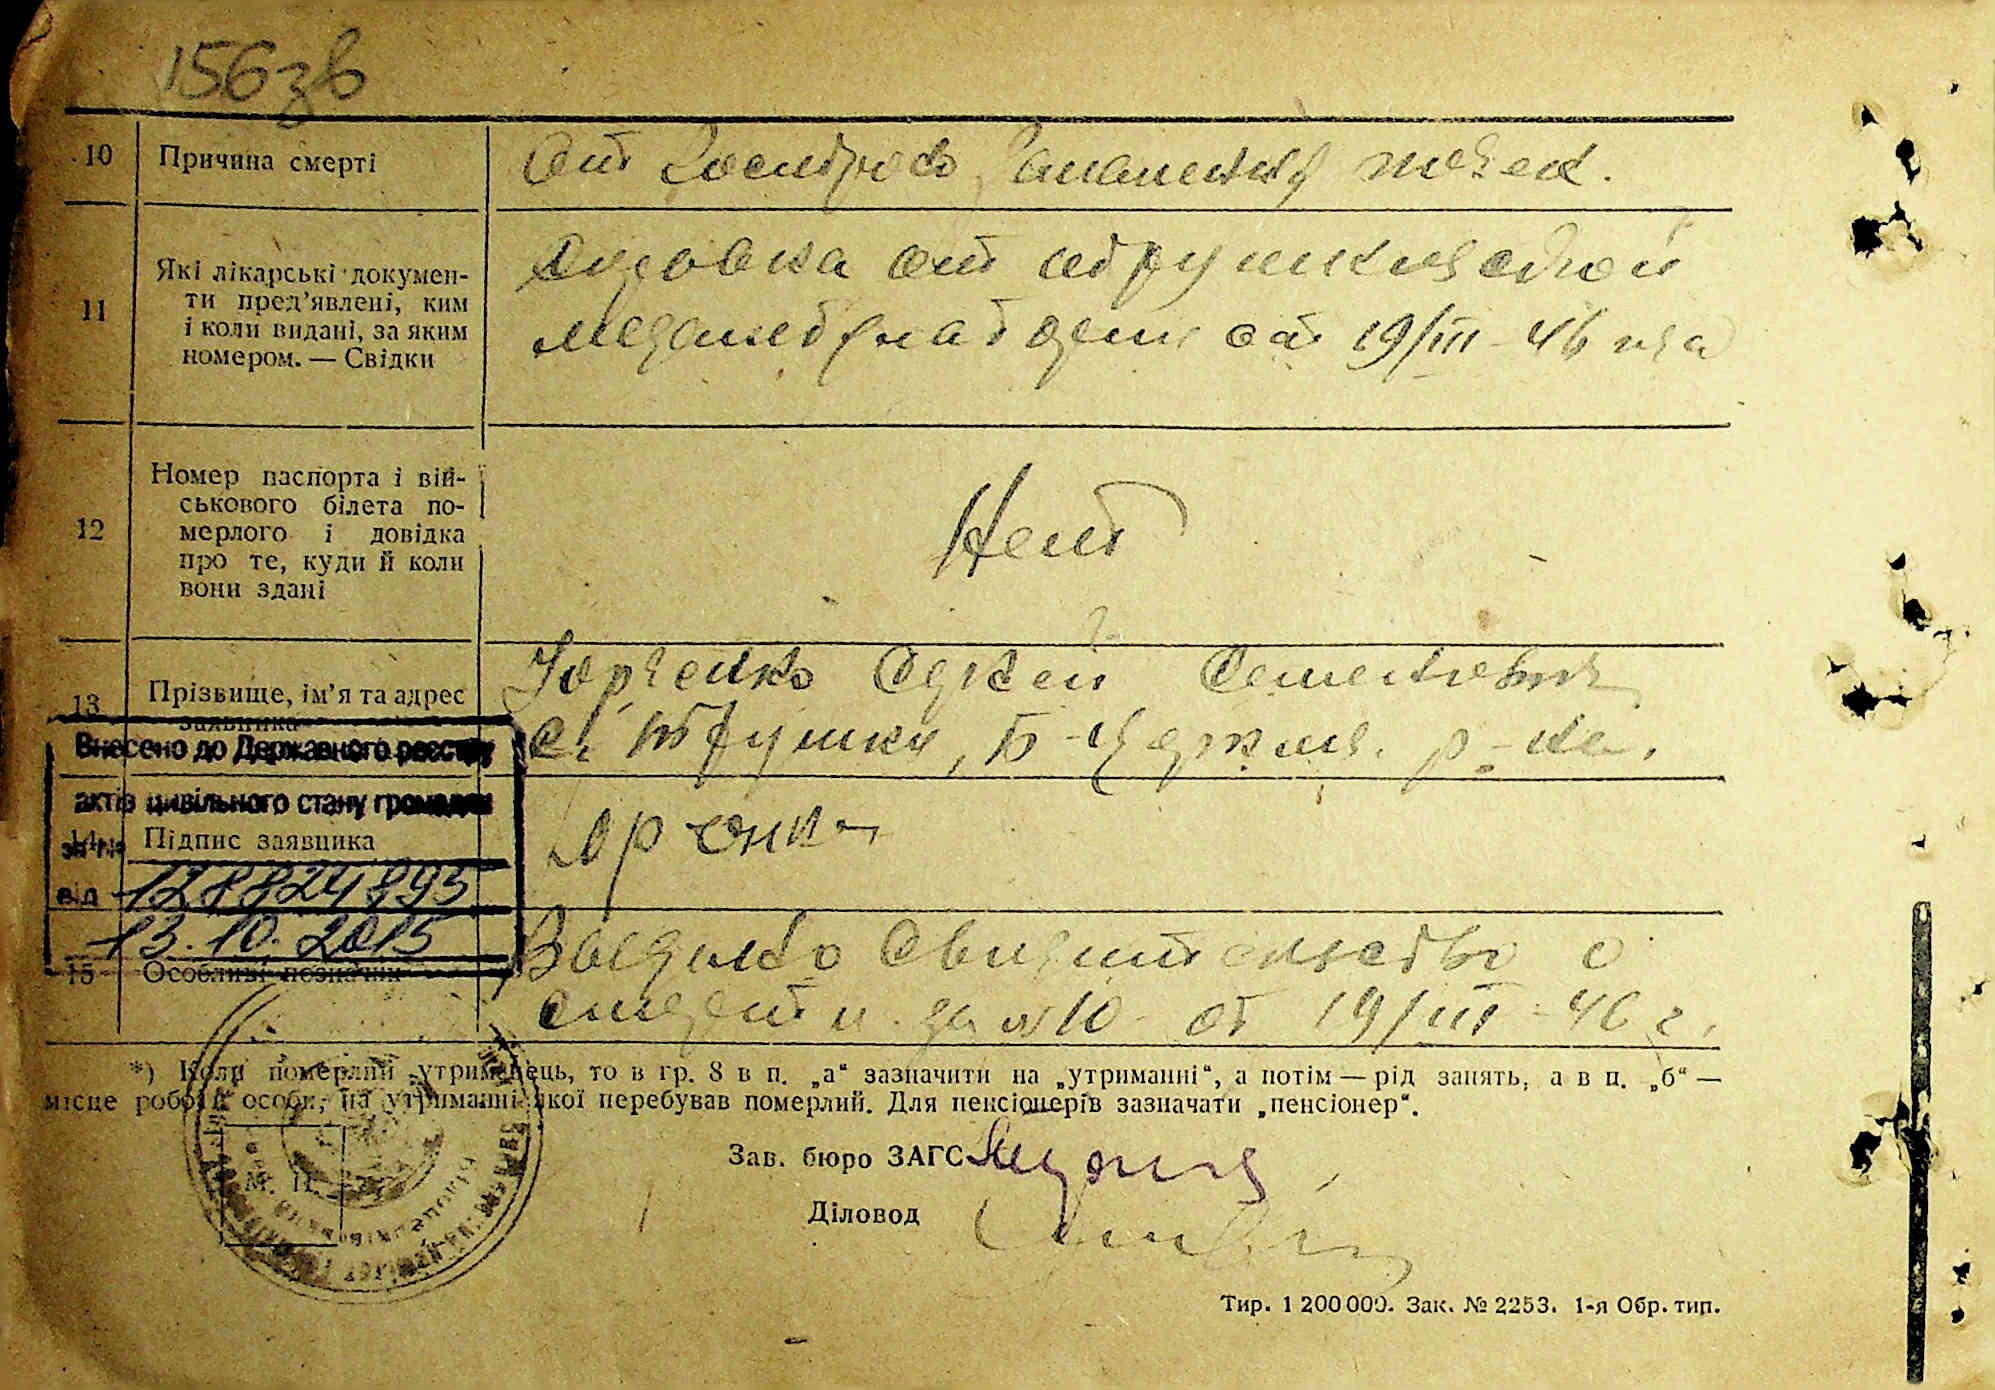 156зв
10 Причина смерти От острого почек.
11 Які лікарські докумен-
ти пред'явлені, ким
і коли видані, за яким
номером. — Свідки
Справка от
от 19/III-46
12 Номер паспорта і вій-
ськового білета по-
мерлого і довідка
про те, куди й коли
вони здані
Нет
13 Прізвище, ім'я та адрес
заявника
Юрченко Сергей Семенович
с. Трушки, Б-Церков. р-на.
Внесено до Державного реєстру
актів цивільного стану громадян
за №
128824895
від
13.10.2015
14 Підпис заявника Юрченко
15 Особливі позначки
Выдано свидетельство о
смерти за №10 от 19/III-46 г.
*) Коли померлий утриманець, то в гр. 8 в п. „а“ зазначити на „утриманні“, а потім — рід занять, а в п. „б“ —
місце роботи особи, на утриманні якої перебував померлий. Для пенсіонерів зазначати „пенсіонер“.
М. П.
Зав. бюро ЗАГС
Діловод
Тир. 1 200 000. Зак. № 2253. 1-я Обр. тип.